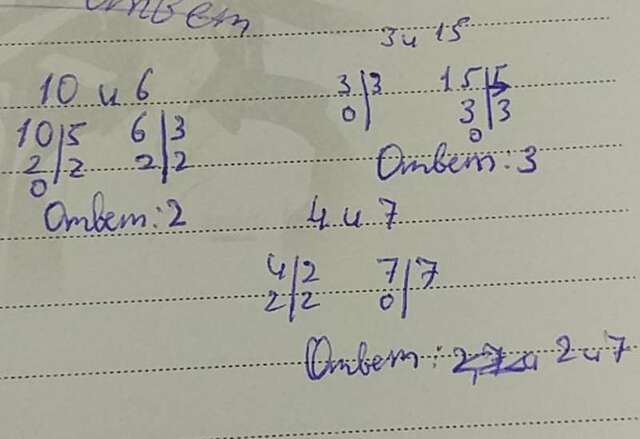 Ответ
3 и 15
10 и 6
3|3 15|5
0| 3|3
0
10|5 6|3
2|2 2|2
0
Ответ: 3
Ответ: 2
4 и 7
4|2 7|7
2|2 0|
Ответ: 2 и 7